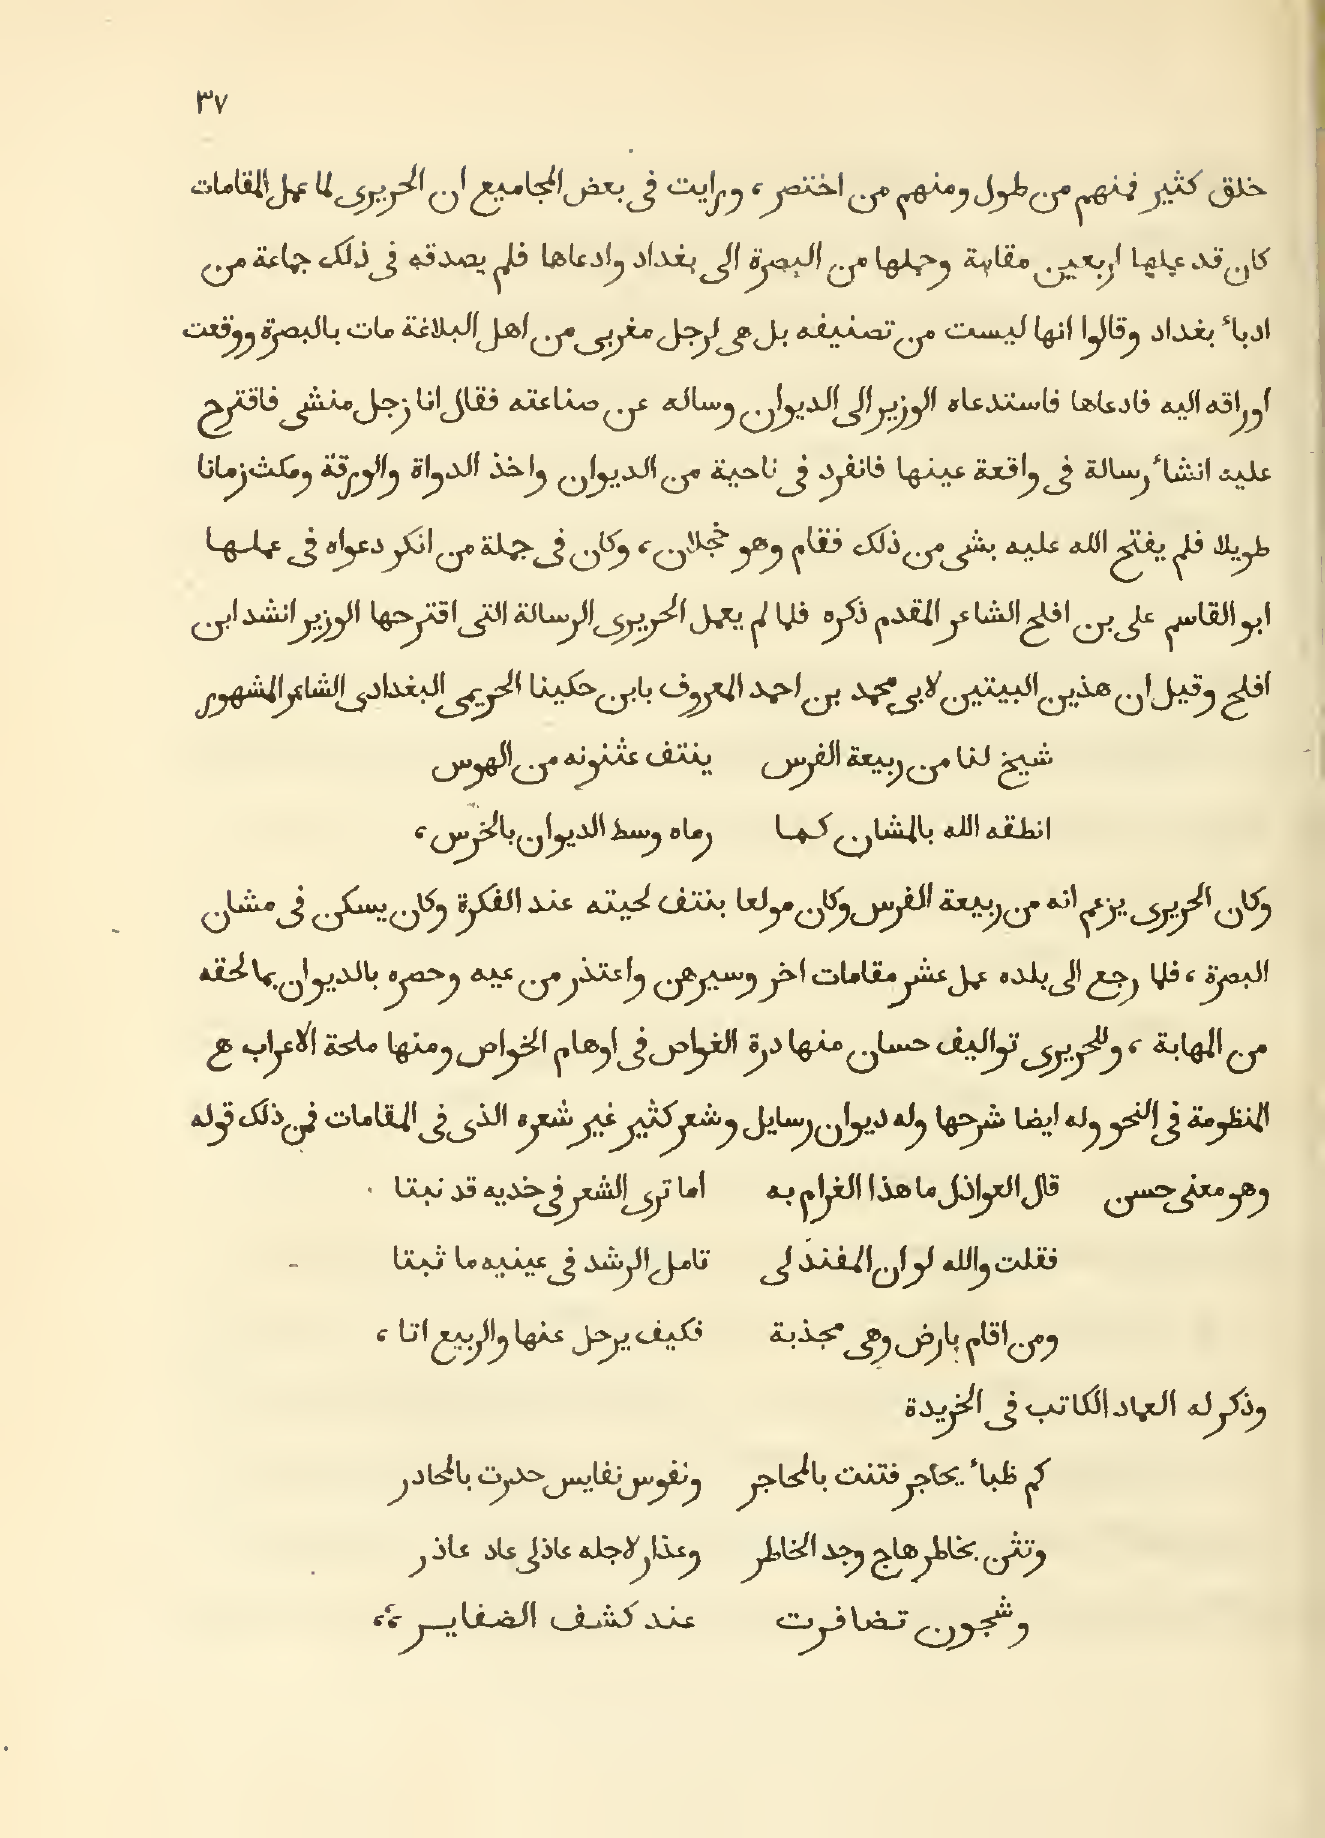 ٣٧
خلق كثير فمنهم من طول ومنهم من اختصر ، ورايت فى بعض المجاميع ان الحريرى لما عمل المقامات
كان قد عملها اربعين مقامة وحملها من البصرة الى بغداد وادعاها فلم يصدقه فى ذلك جماعة من
ادباء بغداد وقالوا انها ليست من تصنيفه بل هى لرجل مغربى من اهل البلاغة مات بالبصرة ووقعت
اوراقه اليه فادعاها فاستدعاه الوزير الى الديوان وساله عن صناعته فقال انا رجل منشى فاقترح
عليه انشاء رسالة فى واقعة عينها فانفرد فى ناحية من الديوان واخذ الدواة والورقة ومكث زمانا
طويلا فلم يفتح الله عليه بشى من ذلك فقام وهو خجلان ، وكان فى جملة من انكر دعواه فى عملها
ابو القاسم على بن افلح الشاعر المقدم ذكره فلما لم يعمل الحريرى الرسالة التى اقترحها الوزير انشد ابن
افلح وقيل ان هذين البيتين لابى محمد بن احمد المعروف بابن حكينا الحريمى البغدادى الشاعر المشهور
شيخ لنا من ربيعة الفرس ينتف عثنونه من الهوس
انطقه الله بالمشان كما رماه وسط الديوان بالخرس ،
وكان الحريرى يزعم انه من ربيعة الفرس وكان مولعا بنتف لحيته عند الفكرة وكان يسكن فى مشان
البصرة ، فلما رجع الى بلده عمل عشر مقامات اخر وسيرهن واعتذر من عيه وحصره بالديوان بما لحقه
من المهابة ، وللحريرى تواليف حسان منها درة الغواص فى اوهام الخواص ومنها ملحة الاعراب ع
المنظومة فى النحو وله ايضا شرحها وله ديوان رسايل وشعر كثير غير شعره الذى فى المقامات فمن ذلك قوله
وهو معنى حسن قال العواذل ما هذا الغرام به اما ترى الشعر فى خديه قد نبتا
فقلت والله لو ان المفند لى تامل الرشد فى عينيه ما ثبتا
ومن اقام بارض وهى مجذبة فكيف يرحل عنها والربيع اتا ،
وذكر له العماد الكاتب فى الخريدة
كم ظباء يحاجر فتنت بالمحاجر ونفوس نفايس حدرت بالمحادر
وتثن بخاطر هاج وجد الخاطر وعذار لاجله عاذلى عاد عاذر
وشجون تضافرت عند كشف الضفاير ،،